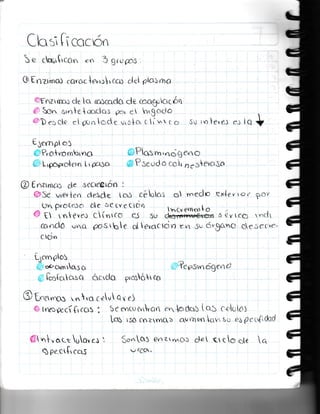 Clasificación
Se clasifican en 3 grupos.
① Enzimas características del plasma
Enzimas de la cascada de coagulación
Son sintetizadas por el hígado
Desde el punto de vista clínico su interés es la ↓
Ejemplos
Protrombina Plasminógeno
Lipoprotein lipasa Pseudocolinesterasa
② Enzimas de secreción :
Se vierten desde las células al medio exterior por
un proceso de secreción
Incremento
El interés clínico es su sérico indi
cando una posible alteración en su órgano de secre-
ción
Ejemplos
α-amilasa Pepsinógeno
Fosfatasa ácida prostática
③ Enzimas intracelulares
Inespecíficas : Se encuentran en todas las células
las isoenzimas aumentan su especificidad
Intracelulares : Son las enzimas del ciclo de la
específicas urea.